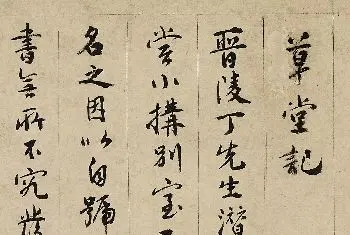 草堂記
晉陵丁先生潛
嘗小搆別室
名之因以自號
書無所不究